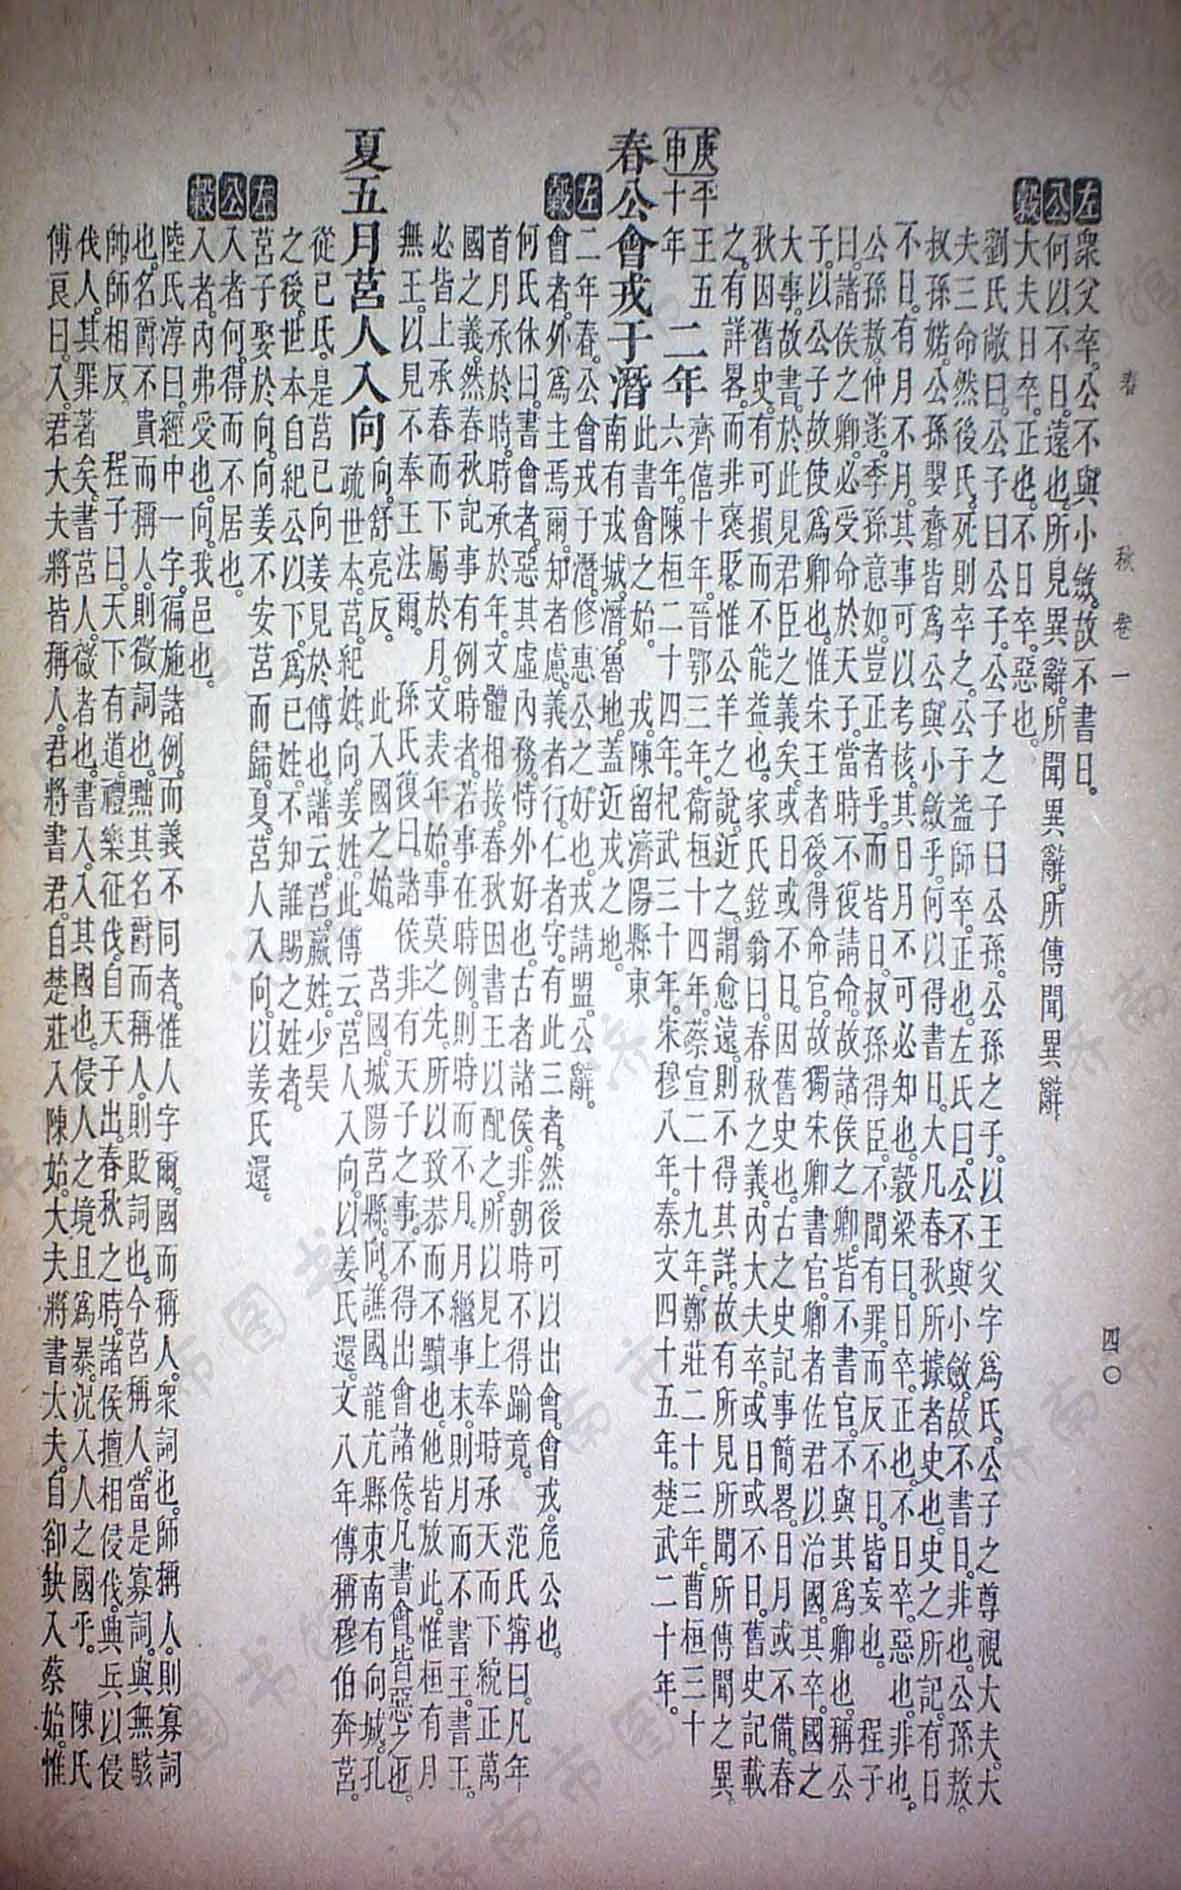 春秋 卷一 四〇
左 衆父卒。公不與小斂。故不書日。
公 何以不日。遠也。所見異辭。所聞異辭。所傳聞異辭
穀 大夫日卒。正也。不日卒。惡也。
劉氏敞曰。公子曰公子。公子之子曰公孫。公孫之子。以王父字爲氏。公子之尊視大夫。大
夫三命然後氏。死則卒之。公子益師卒。正也。左氏曰。公不與小斂。故不書日。非也。公孫敖。
叔孫婼。公孫嬰齊皆爲公與小斂乎。何以得書日。大凡春秋所據者史也。史之所記。有日
不日。有月不月。其事可以考核。其日月不可必知也。穀梁曰。日卒。正也。不日卒。惡也。非也。
公孫敖。仲遂。季孫意如。豈正者乎。而皆日。叔孫得臣。不聞有罪。而反不日。皆妄也。 程子
曰。諸侯之卿。必受命於天子。當時不復請命。故諸侯之卿。皆不書官。不與其爲卿也。稱公
子。以公子故使爲卿也。惟宋王者後。得命官。故獨宋卿書官。卿者佐君以治國。其卒。國之
大事。故書。於此見君臣之義矣。或日或不日。因舊史也。古之史記事簡畧。日月或不備。春
秋因舊史。有可損而不能益也。家氏鉉翁曰。春秋之義。內大夫卒。或日或不日。舊史記載
之。有詳畧。而非襃貶。惟公羊之說。近之。謂愈遠。則不得其詳。故有所見所聞所傳聞之異。
庚申 平王五十年 二年 齊僖十年。晉鄂三年。衞桓十四年。蔡宣二十九年。鄭莊二十三年。曹桓三十
六年。陳桓二十四年。杞武三十年。宋穆八年。秦文四十五年。楚武二十年。
春公會戎于潛 此書會之始。 戎。陳留濟陽縣東
南有戎城。潛。魯地。蓋近戎之地。
左 二年春。公會戎于潛。修惠公之好也。戎請盟。公辭。
穀 會者。外爲主焉爾。知者慮。義者行。仁者守。有此三者。然後可以出會。會戎。危公也。
何氏休曰。書會者。惡其虛內務。恃外好也。古者諸侯。非朝時不得踰竟。 范氏甯曰。凡年
首月承於時。時承於年。文體相接。春秋因書王以配之。所以見上奉時承天而下統正萬
國之義。然春秋記事有例時者。若事在時例。則時而不月。月繼事末。則月而不書王。書王。
必皆上承春而下屬於月。文表年始。事莫之先。所以致恭而不黷也。他皆放此。惟桓有月
無王。以見不奉王法爾。 孫氏復曰。諸侯非有天子之事。不得出會諸侯。凡書會。皆惡之也。
夏五月莒人入向 向。舒亮反。 此入國之始。 莒國。城陽莒縣。向。譙國。龍亢縣東南有向城。孔
疏世本。莒。紀姓。向。姜姓。此傳云。莒人入向。以姜氏還。文八年傳稱穆伯奔莒。
從已氏。是莒已向姜見於傳也。譜云。莒。嬴姓。少昊
之後。世本自紀公以下。爲已姓。不知誰賜之姓者。
左 莒子娶於向。向姜不安莒而歸。夏。莒人入向。以姜氏還。
公 入者何。得而不居也。
穀 入者。內弗受也。向。我邑也。
陸氏淳曰。經中一字。徧施諸例。而義不同者。惟人字爾。國而稱人。衆詞也。師稱人。則寡詞
也。名爵不貴而稱人。則微詞也。黜其名爵而稱人。則貶詞也。今莒稱人。當是寡詞。與無駭
帥師相反。 程子曰。天下有道。禮樂征伐。自天子出。春秋之時。諸侯擅相侵伐。興兵以侵
伐人。其罪著矣。書莒人。微者也。書入。入其國也。侵人之境且爲暴。況入人之國乎。 陳氏
傅良曰。入。君大夫將皆稱人。君將書君。自楚莊入陳始。大夫將書大夫。自卻缺入蔡始。惟